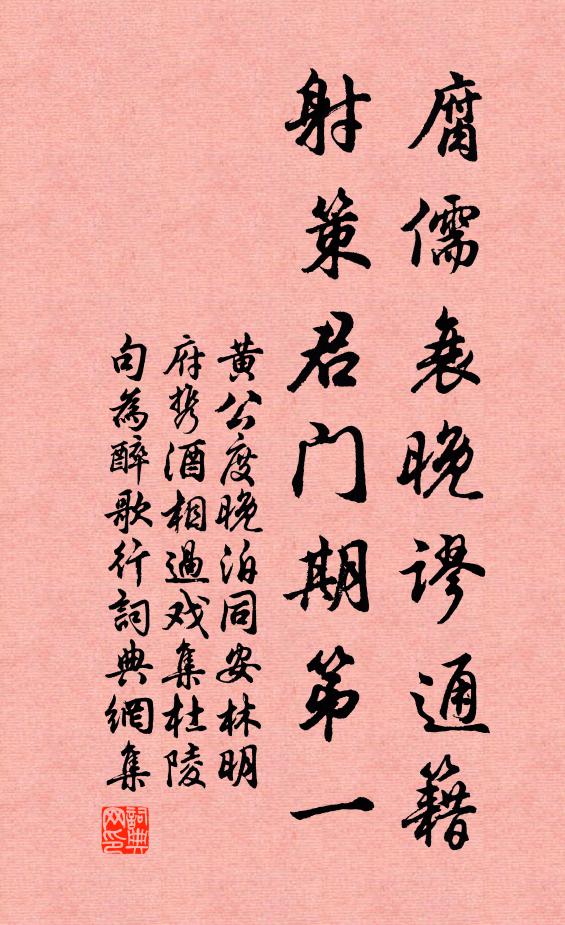 腐儒衰晚谬通籍
射策君门期第一
黄公度晚泊同安林明
府携酒相過戏集杜陵
句為醉歌行詞典網集
詞典
网印